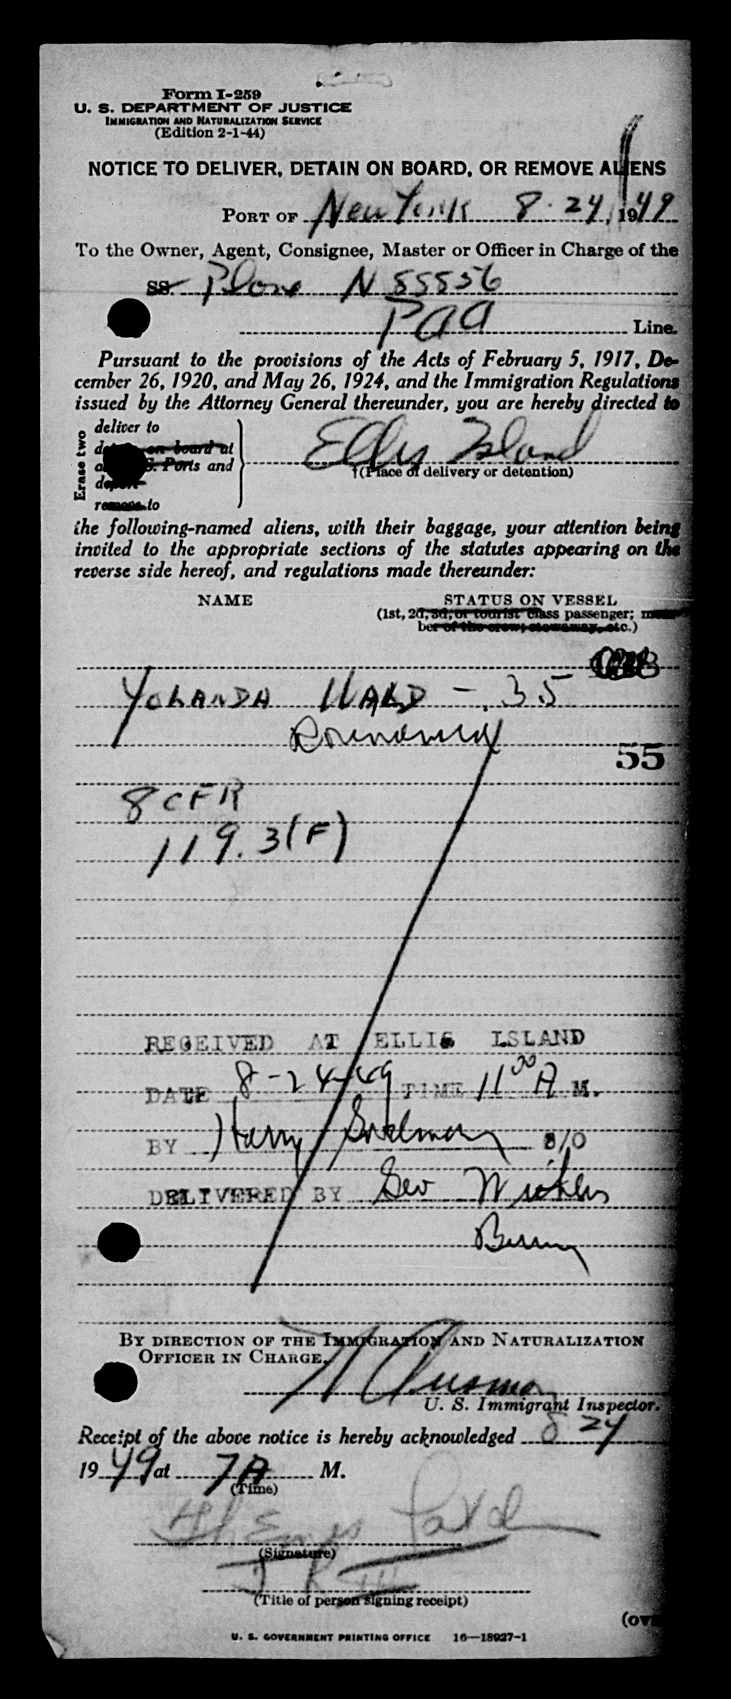 Form I-259
U. S. DEPARTMENT OF JUSTICE
IMMIGRATION AND NATURALIZATION SERVICE
(Edition 2-1-44)
NOTICE TO DELIVER, DETAIN ON BOARD, OR REMOVE ALIENS
PORT OF New York 8-24, 1949
To the Owner, Agent, Consignee, Master or Officer in Charge of the
SS. Plane N 88836
PAA Line.
Pursuant to the provisions of the Acts of February 5, 1917, De-
cember 26, 1920, and May 26, 1924, and the Immigration Regulations
issued by the Attorney General thereunder, you are hereby directed to
Erase two
deliver to
on board at
Ports and
remove to
Ellis Island
†(Place of delivery or detention)
the following-named aliens, with their baggage, your attention being
invited to the appropriate sections of the statutes appearing on the
reverse side hereof, and regulations made thereunder:
NAME STATUS ON VESSEL
(1st, 2d, 3d, or tourist class passenger; mem-
ber of the crew, stowaway, etc.)
YOLANDA WALD - 35
Roumania
55
8 CFR
119.3(F)
RECEIVED AT ELLIS ISLAND
DATE 8-24-49 TIME 11 00 A M.
BY Harry S/O
DELIVERED BY Geo
BY DIRECTION OF THE IMMIGRATION AND NATURALIZATION
OFFICER IN CHARGE.
U. S. Immigrant Inspector.
Receipt of the above notice is hereby acknowledged 8 24
1949 at 7A M.
(Time)
(Signature)
(Title of person signing receipt)
U. S. GOVERNMENT PRINTING OFFICE 16—18927-1